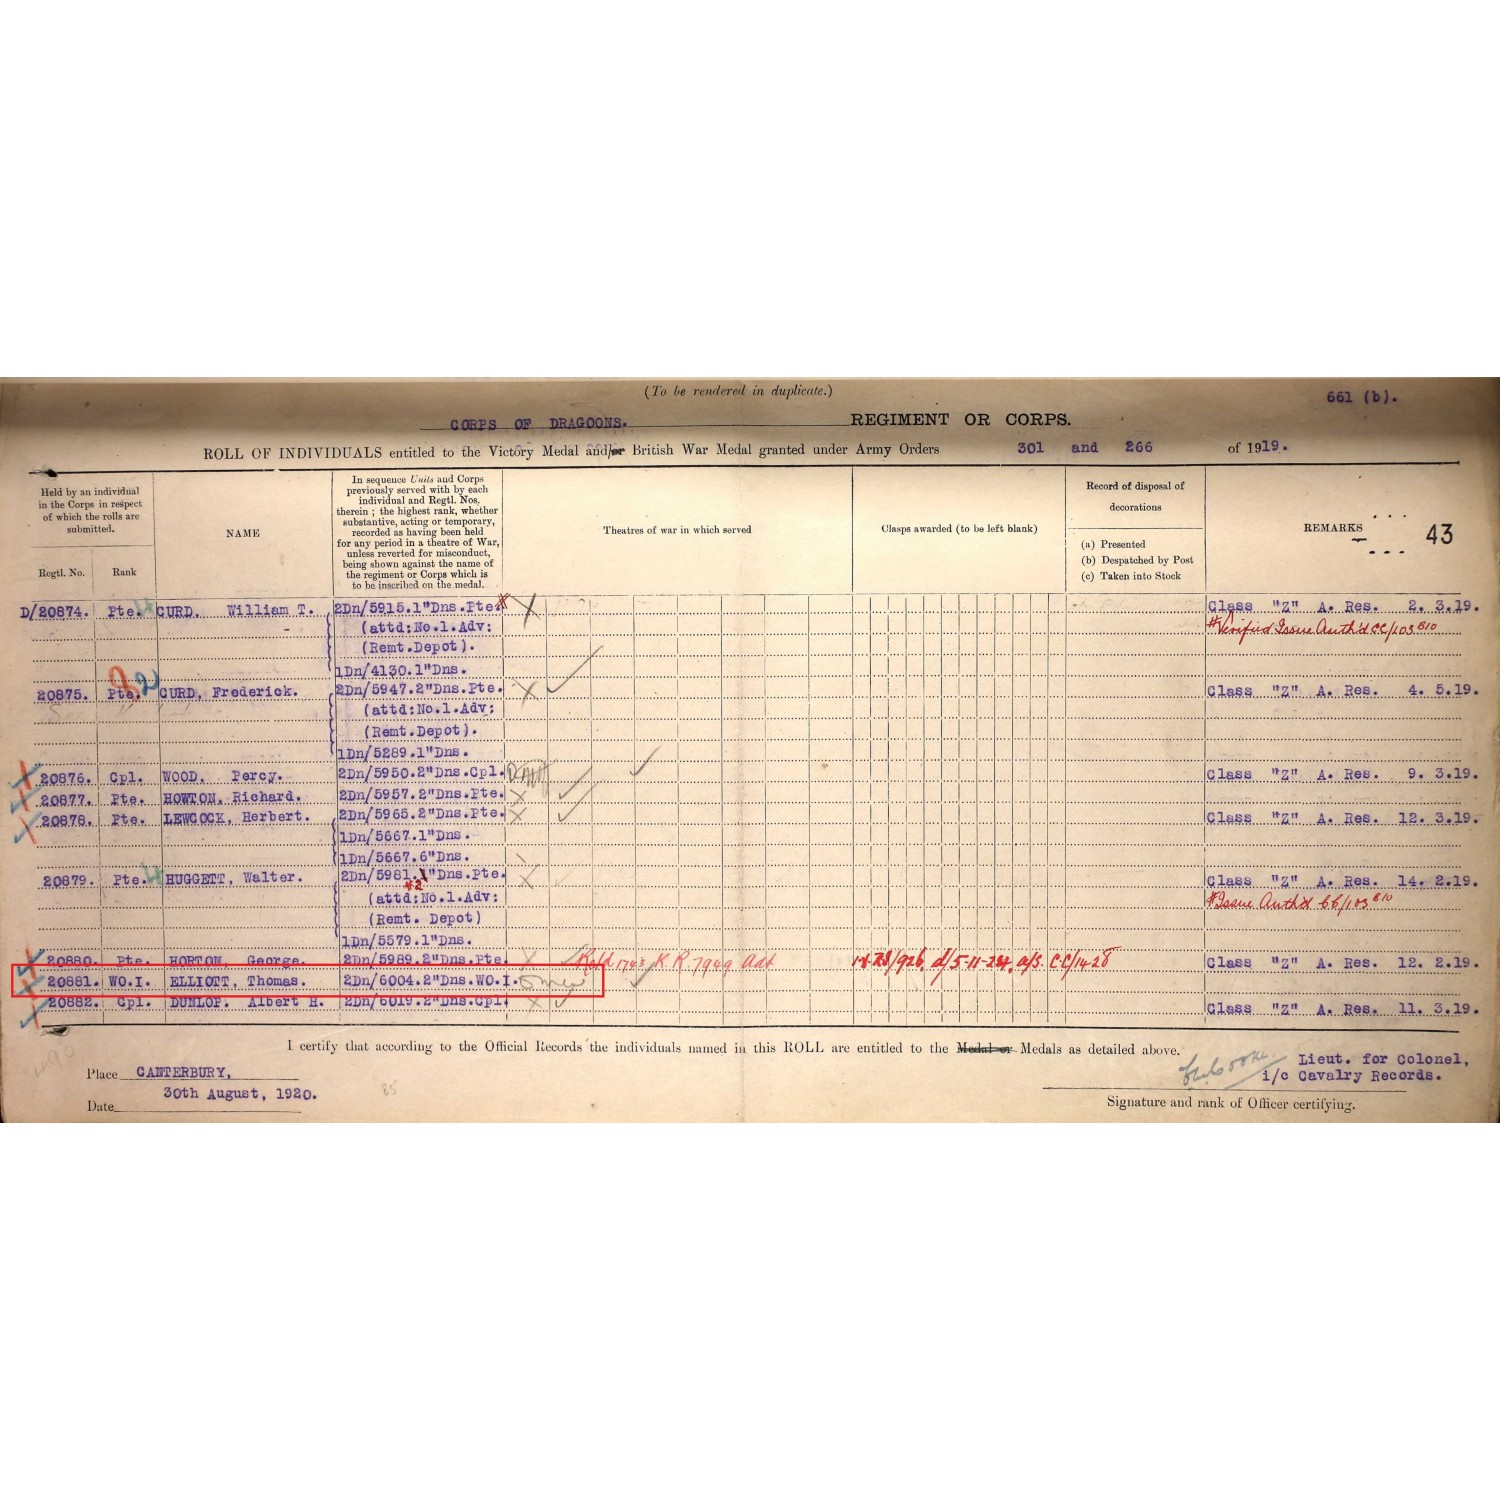 (To be rendered in duplicate.)
661 (b).
CORPS OF DRAGOONS. REGIMENT OR CORPS.
ROLL OF INDIVIDUALS entitled to the Victory Medal and/or British War Medal granted under Army Orders 301 and 266 of 1919.
Held by an individual
in the Corps in respect
of which the rolls are
submitted.
Regtl. No. Rank
NAME
In sequence Units and Corps
previously served with by each
individual and Regtl. Nos.
therein ; the highest rank, whether
substantive, acting or temporary,
recorded as having been held
for any period in a theatre of War,
unless reverted for misconduct,
being shown against the name of
the regiment or Corps which is
to be inscribed on the medal.
Theatres of war in which served
Clasps awarded (to be left blank)
Record of disposal of
decorations
(a) Presented
(b) Despatched by Post
(c) Taken into Stock
REMARKS
43
D/20874. Pte. CURD, William T. 2Dn/5915.1"Dns.Pte. Class "Z" A. Res. 2. 3.19.
(attd:No.1.Adv: #Verified Issue Auth'd CC/103 B10
(Remt.Depot).
1Dn/4130.1"Dns.
20875. Pte. CURD, Frederick. 2Dn/5947.2"Dns.Pte. Class "Z" A. Res. 4. 5.19.
(attd:No.1.Adv:
(Remt.Depot).
1Dn/5289.1"Dns.
20876. Cpl. WOOD, Percy. 2Dn/5950.2"Dns.Cpl. Class "Z" A. Res. 9. 3.19.
20877. Pte. HOWTON, Richard. 2Dn/5957.2"Dns.Pte.
20878. Pte. LEWCOCK, Herbert. 2Dn/5965.2"Dns.Pte. Class "Z" A. Res. 12. 3.19.
1Dn/5667.1"Dns.
1Dn/5667.6"Dns.
20879. Pte. HUGGETT, Walter. 2Dn/5981.1"Dns.Pte. Class "Z" A. Res. 14. 2.19.
#2
(attd:No.1.Adv: #Issue Auth'd CC/103 B10
(Remt. Depot)
1Dn/5579.1"Dns.
20880. Pte. HORTON, George. 2Dn/5989.2"Dns.Pte. 1743 K.R. 7949 d/5-11-24. CC/1428 Class "Z" A. Res. 12. 2.19.
20881. WO.I. ELLIOTT, Thomas. 2Dn/6004.2"Dns.WO.I.
20882. Cpl. DUNLOP, Albert H. 2Dn/6019.2"Dns.Cpl. Class "Z" A. Res. 11. 3.19.
I certify that according to the Official Records the individuals named in this ROLL are entitled to the Medal or Medals as detailed above.
Place CANTERBURY,
Lieut. for Colonel,
i/c Cavalry Records.
Date 30th August, 1920.
85
Signature and rank of Officer certifying.